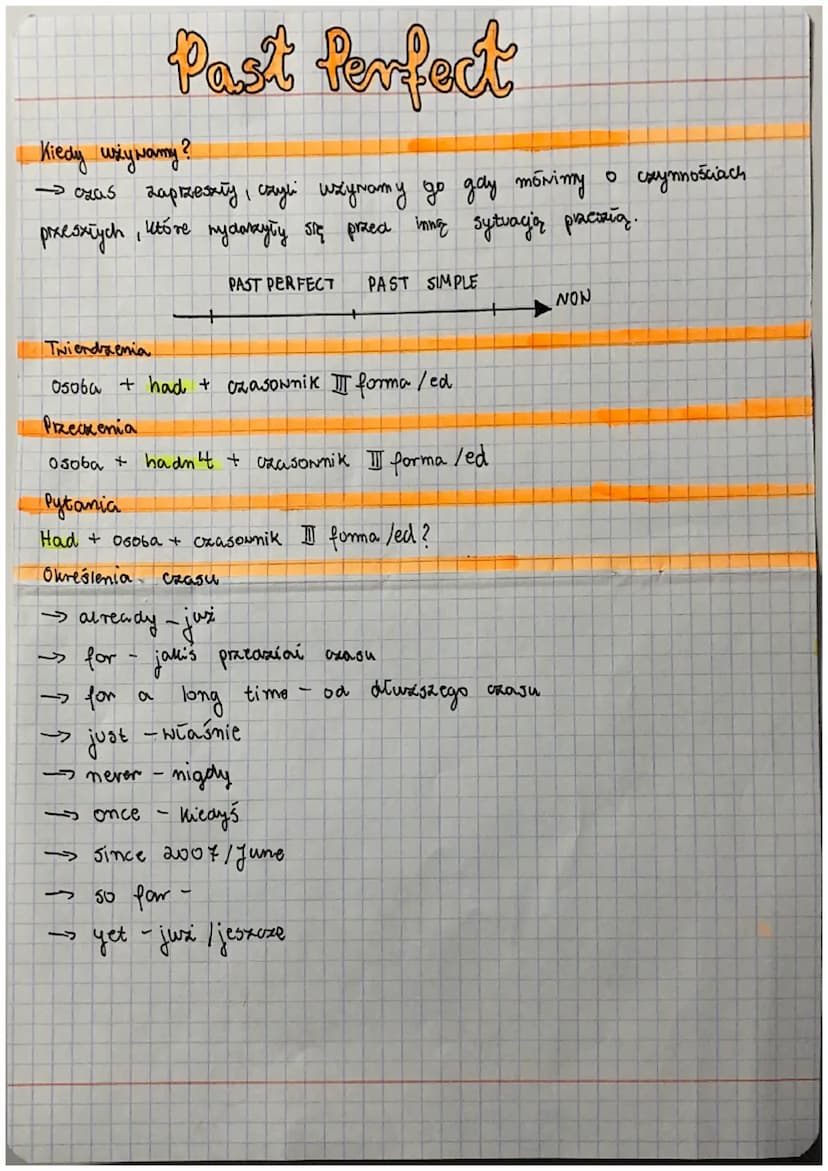 Past Perfect
Kiedy używamy?
→ czas zaprzeszły, czyli używamy go gdy mówimy o czynnościach
przeszłych, które wydarzyły się przed inną sytuacją przeszłą.
PAST PERFECT PAST SIMPLE
NOW
Twierdzenia
osoba + had + czasownik III forma /ed
Przeczenia
osoba + hadn't + czasownik III forma /ed
Pytania
Had + osoba + czasownik III forma /ed?
Określenia czasu
→ already - już
→ for - jakiś przedział czasu
→ for a long time - od dłuższego czasu
→ just - właśnie
→ never - nigdy
→ once - kiedyś
→ since 2007/June
→ so far -
→ yet - już /jeszcze